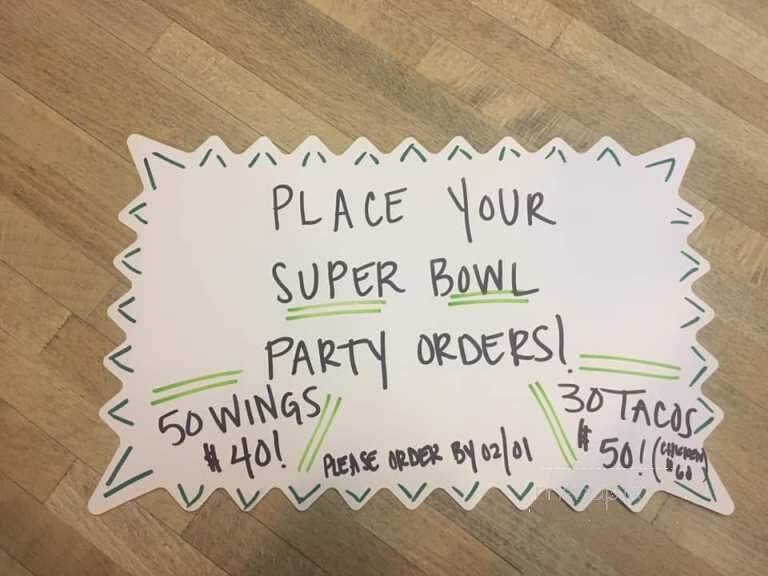 PLACE YOUR
SUPER BOWL
PARTY ORDERS!
50 WINGS
$40!
PLEASE ORDER BY 02/01
30 TACOS
$50! (CHICKEN
$60)